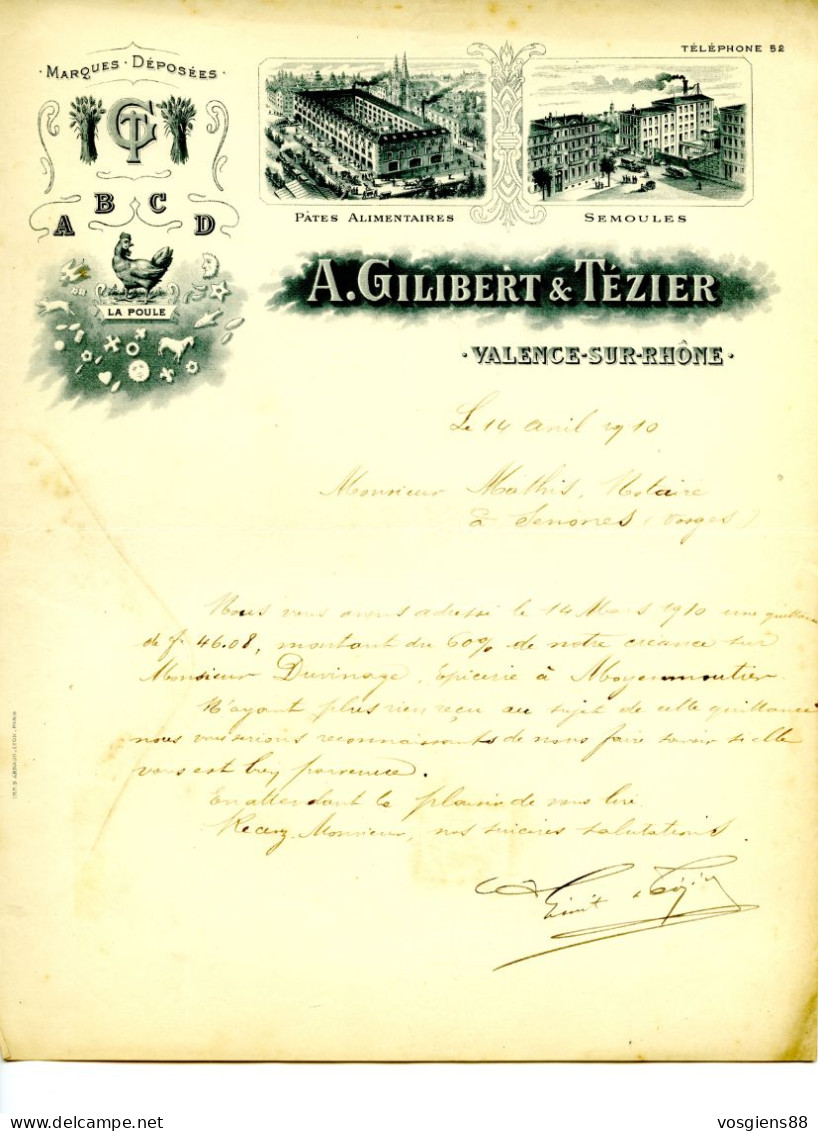 MARQUES · DÉPOSÉES
TÉLÉPHONE 52
GT
A B C D
LA POULE
PÂTES ALIMENTAIRES
SEMOULES
A. GILIBERT & TÉZIER
· VALENCE-SUR-RHÔNE ·
Le 14 avril 1910
Monsieur Mathis, Notaire
à Senones (Vosges)
Nous vous avons adressé le 14 Mars 1910 une quittance
de f. 46.08, montant du 60% de notre créance sur
Monsieur Duvinage, Épicerie à Moyenmoutier.
N'ayant plus rien reçu au sujet de cette quittance
nous vous serions reconnaissants de nous faire savoir si elle
vous est bien parvenue.
En attendant le plaisir de vous lire
Recevez, Monsieur, nos sincères salutations.
vosgiens88